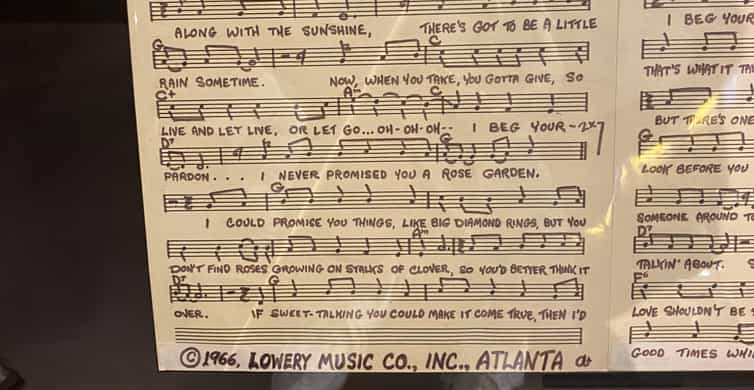 ALONG WITH THE SUNSHINE, THERE'S GOT TO BE A LITTLE
G C
RAIN SOMETIME. NOW, WHEN YOU TAKE, YOU GOTTA GIVE, SO
C+ Am C
LIVE AND LET LIVE, OR LET GO... OH-OH-OH-- I BEG YOUR-2x
D7 G
PARDON... I NEVER PROMISED YOU A ROSE GARDEN.
G
I COULD PROMISE YOU THINGS, LIKE BIG DIAMOND RINGS, BUT YOU
Am
DON'T FIND ROSES GROWING ON STALKS OF CLOVER, SO YOU'D BETTER THINK IT
D7 G
OVER. IF SWEET-TALKING YOU COULD MAKE IT COME TRUE, THEN I'D
©1966, LOWERY MUSIC CO., INC., ATLANTA
I BEG YOUR
THAT'S WHAT IT
BUT THERE'S ONE
G
LOOK BEFORE YOU
SOMEONE AROUND
D7
TALKIN' ABOUT.
F6
LOVE SHOULDN'T BE
GOOD TIMES